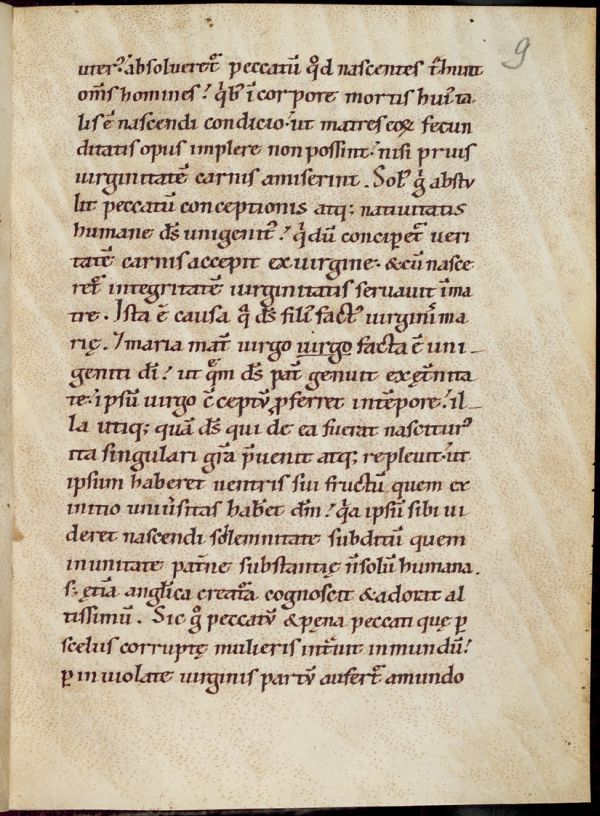 9
uter? absolueret᷑ peccatū qd̄ nascentes t᷑hunt
om̄s homines? qͥb; ī corpore mortis huiꝰ ta
lis ē nascendi condicio. ut matres eoꝝ fecun
ditatis opus implere non possint. nisi prius
uirginitatē carnis amiserint. Solꝰ gͥ abstu
lit peccatū conceptionis atq; natiuitatis
humane ds̄ unigenitꝰ? qͥ dū conciperet᷑ ueri
tatē carnis accepit ex uirgine. & cū nasce
ret᷑ integritatē uirginitatis seruauit ī ma
tre. Ista ē causa qͣ ds̄ filiꝰ factꝰ uirginis ma
rię. I maria mat᷑ uirgo uirgo facta ē uni
geniti dī? ut quē ds̄ pat᷑ genuit ex ęt᷑nita
te. ipsū uirgo c̄ceptū ꝓferret in tēpore? il
la utiq; quā ds̄ qui de ea fuerat nasciturꝰ
ita singulari gr̄a p̄uenit atq; repleuit. ut
ipsum haberet uentris sui fructū quem ex
initio uniuersitas habet dn̄m? qͥa ipsū sibi ui
deret nascendi sollemnitate subditū quem
in unitate pat᷑ne substantię n̄ solū humana.
s; ętiā anglica creat᷑a cognoscit & adorat al
tissimū. Sic gͦ peccatū & pęna peccati quę ꝑ
scelus corruptę mulieris int᷑uit in mundū?
ꝑ inuiolate uirginis partū aufert᷑ a mundo